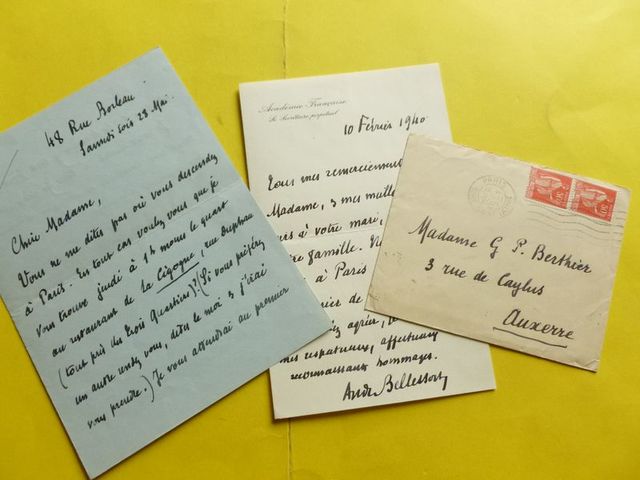 48 Rue Boileau
Samedi soir 28 Mai.
Chère Madame,
Vous ne me dites pas où vous descendez
à Paris. En tout cas voulez vous que je
vous trouve jeudi à 1h moins le quart
au restaurant de la Cigogne, rue Duphau
(tout près du Trois Quartiers)? (Si vous préférez
un autre rendez vous, dites le moi & j'irai
vous prendre.) Je vous attendrai au premier
Académie Française
Le Secrétaire perpétuel
10 Février 1940
Tous mes remerciements
Madame, & mes meille
à votre mari,
famille.
à Paris
de
agréer,
mes respectueux, affectueux
reconnaissants hommages.
André Bellessort
PARIS
Madame G P. Berthier
3 rue de Caylus
Auxerre